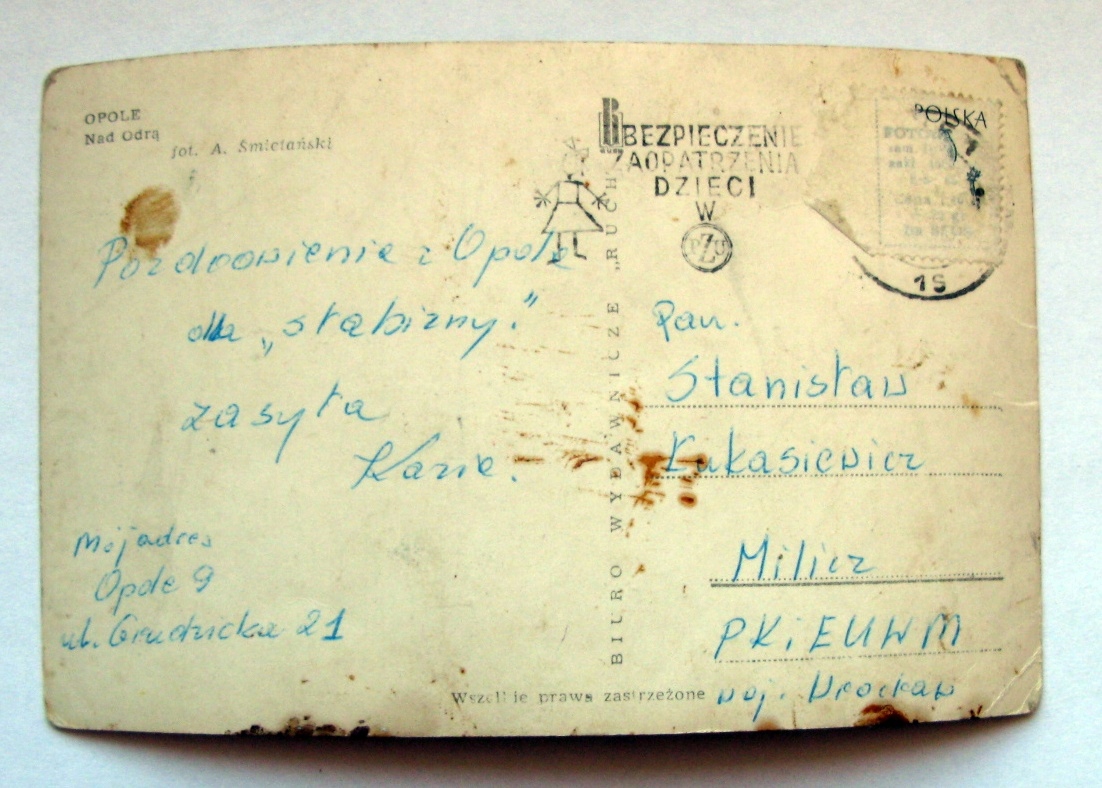 OPOLE
Nad Odrą
fot. A. Śmietański
BEZPIECZENIE
ZAOPATRZENIA
DZIECI
W
PZU
POLSKA
1S
Pozdrowienie z Opole
dla „słabizny."
zasyła
Kazie.
Mój adres
Opole 9
ul. Grudzicka 21
BIURO WYDAWNICZE „RUCH
Pan.
Stanisław
Łukasiewicz
Milicz
PKiEUWM
woj. Wrocław
Wszelkie prawa zastrzeżone